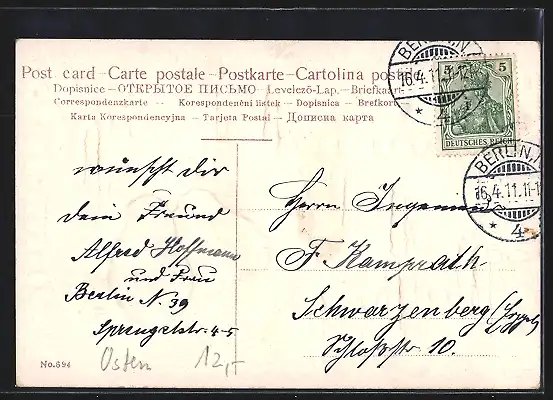 Post card – Carte postale – Postkarte – Cartolina postale
Dopisnice – ОТКРЫТОЕ ПИСЬМО – Levelező-Lap. – Briefkaart
Correspondenzkarte – Korespondenční lístek – Dopisnica – Brefkort
Karta Korespondencyjna – Tarjeta Postal – Дописна карта
BERLIN.N
16.4.11.11-12
* 4
5
DEUTSCHES REICH
BERLIN.N
16.4.11.11-1
* 4
wünscht Dir
Dein Freund
Alfred Hoffmann
und Frau
Berlin N. 39
Sprengelstr. 4-5
Herrn Ingenieur
F. Kamprath
Schwarzenberg
Schloßstr 10.
No. 694
Ostern 12,-